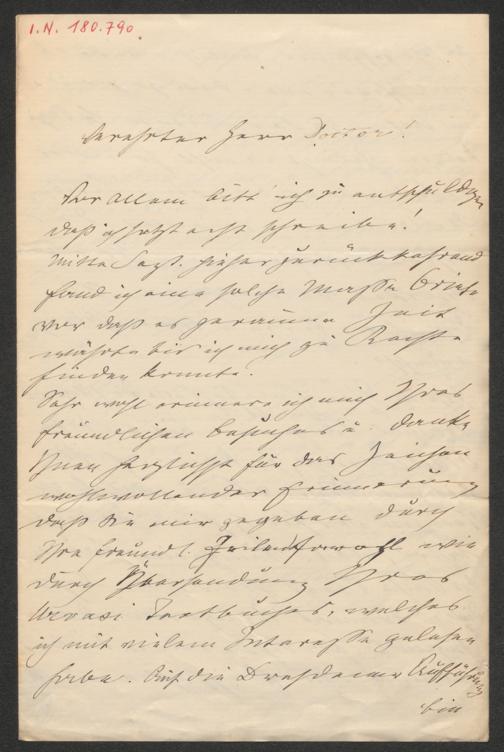 I.N. 180.790
Verehrter Herr Doctor!
Vor allem bitt' ich zu entschuldigen
daß ich jetzt erst schreibe!
Mitte Sept. hieher zurückkehrend
fand ich eine solche Masse Briefe
vor daß es geraume Zeit
währte bis ich mich zu Rechte
finden konnte.
Sehr wohl erinnere ich mich Ihres
freundlichen Besuches u. danke
Ihnen herzlichst für das Zeichen
wohlwollender Erinnerung
daß Sie mir gegeben durch
Ihre freundl. Zeilen sowohl wie
durch Übersendung Ihres
Urvasi Textbuches, welches
ich mit vielem Interesse gelesen
habe. Auf die Dresdener Aufführung
bin